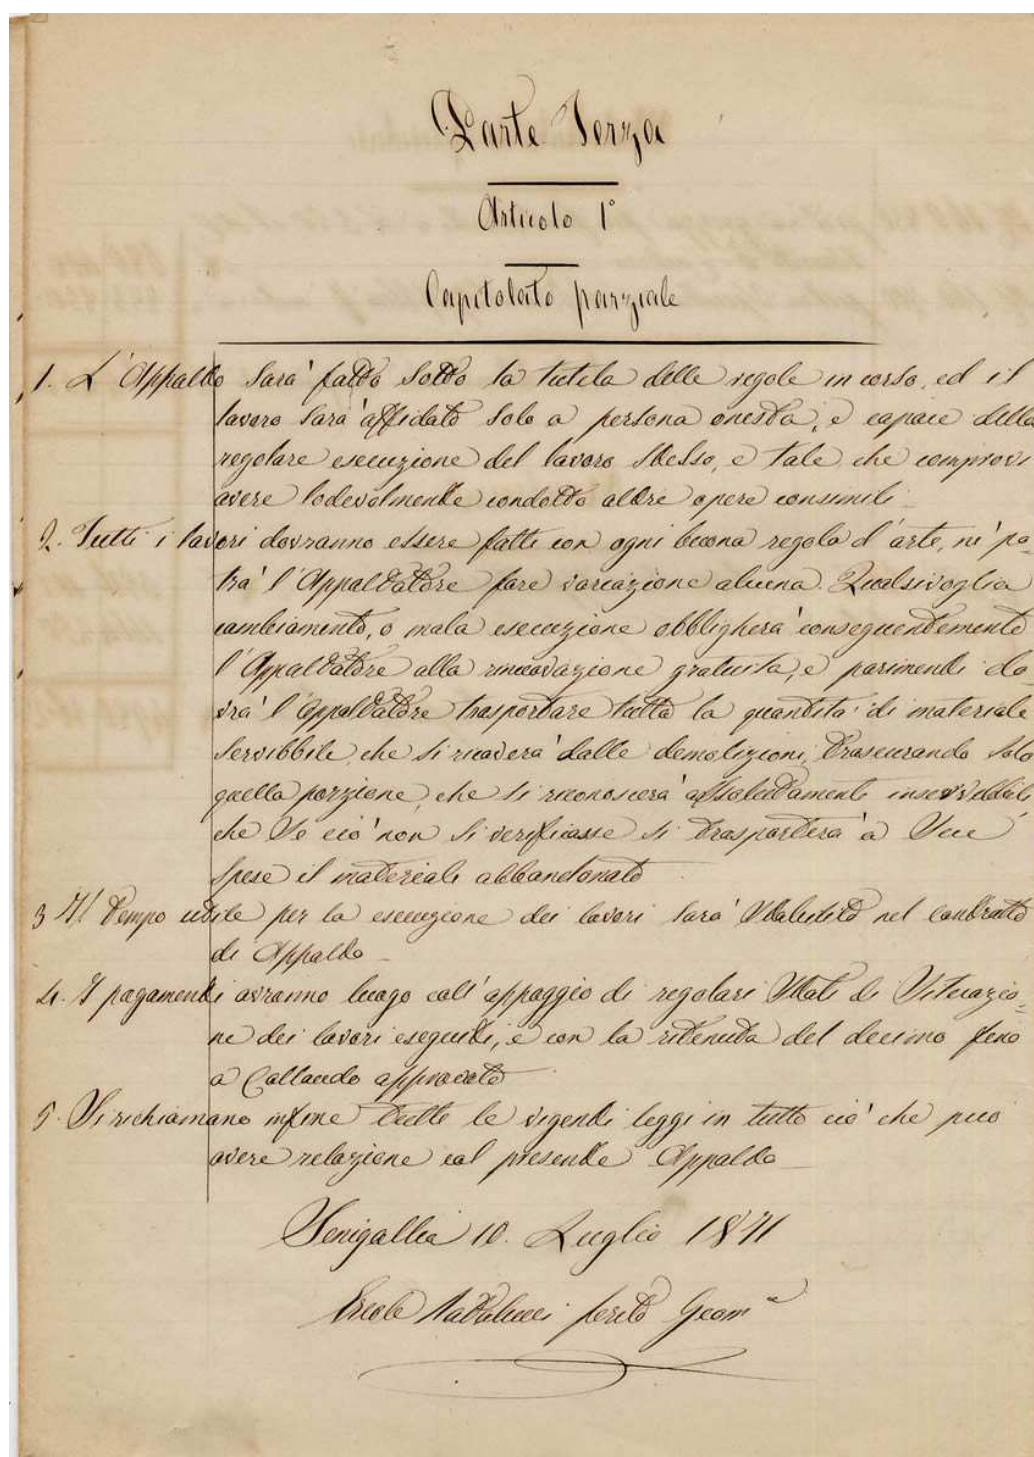 Parte Terza
Articolo 1°
Capitolato parziale
1. L'Appalto sarà fatto sotto la tutela delle regole in corso, ed il
lavoro sarà affidato solo a persona onesta, e capace della
regolare esecuzione del lavoro stesso, e tale che comprovi
avere lodevolmente condotto altre opere consimili
2. Tutti i lavori dovranno essere fatti con ogni buona regola d'arte, nè po-
trà l'Appaltatore fare variazione alcuna. Qualsivoglia
cambiamento, o mala esecuzione obbligherà conseguentemente
l'Appaltatore alla rinnovazione gratuita, e parimenti do-
vrà l'Appaltatore trasportare tutta la quantità di materiale
servibbile, che si ricaverà dalle demolizioni, trascurando solo
quella porzione, che si riconoscerà assolutamente
che se ciò non si verificasse si trasporterà a sue
spese il materiale abbandonato
3 Il tempo utile per la esecuzione dei lavori sarà stabilito nel contratto
di Appalto
4. I pagamenti avranno luogo coll'appoggio di regolari Stati di Situazio-
ne dei lavori eseguiti, e con la ritenuta del decimo fino
a Collaudo approvato
5. Si richiamano infine tutte le vigenti leggi in tutto ciò che può
avere relazione col presente Appalto
Senigallia 10. Luglio 1871
Ercole perito Geom